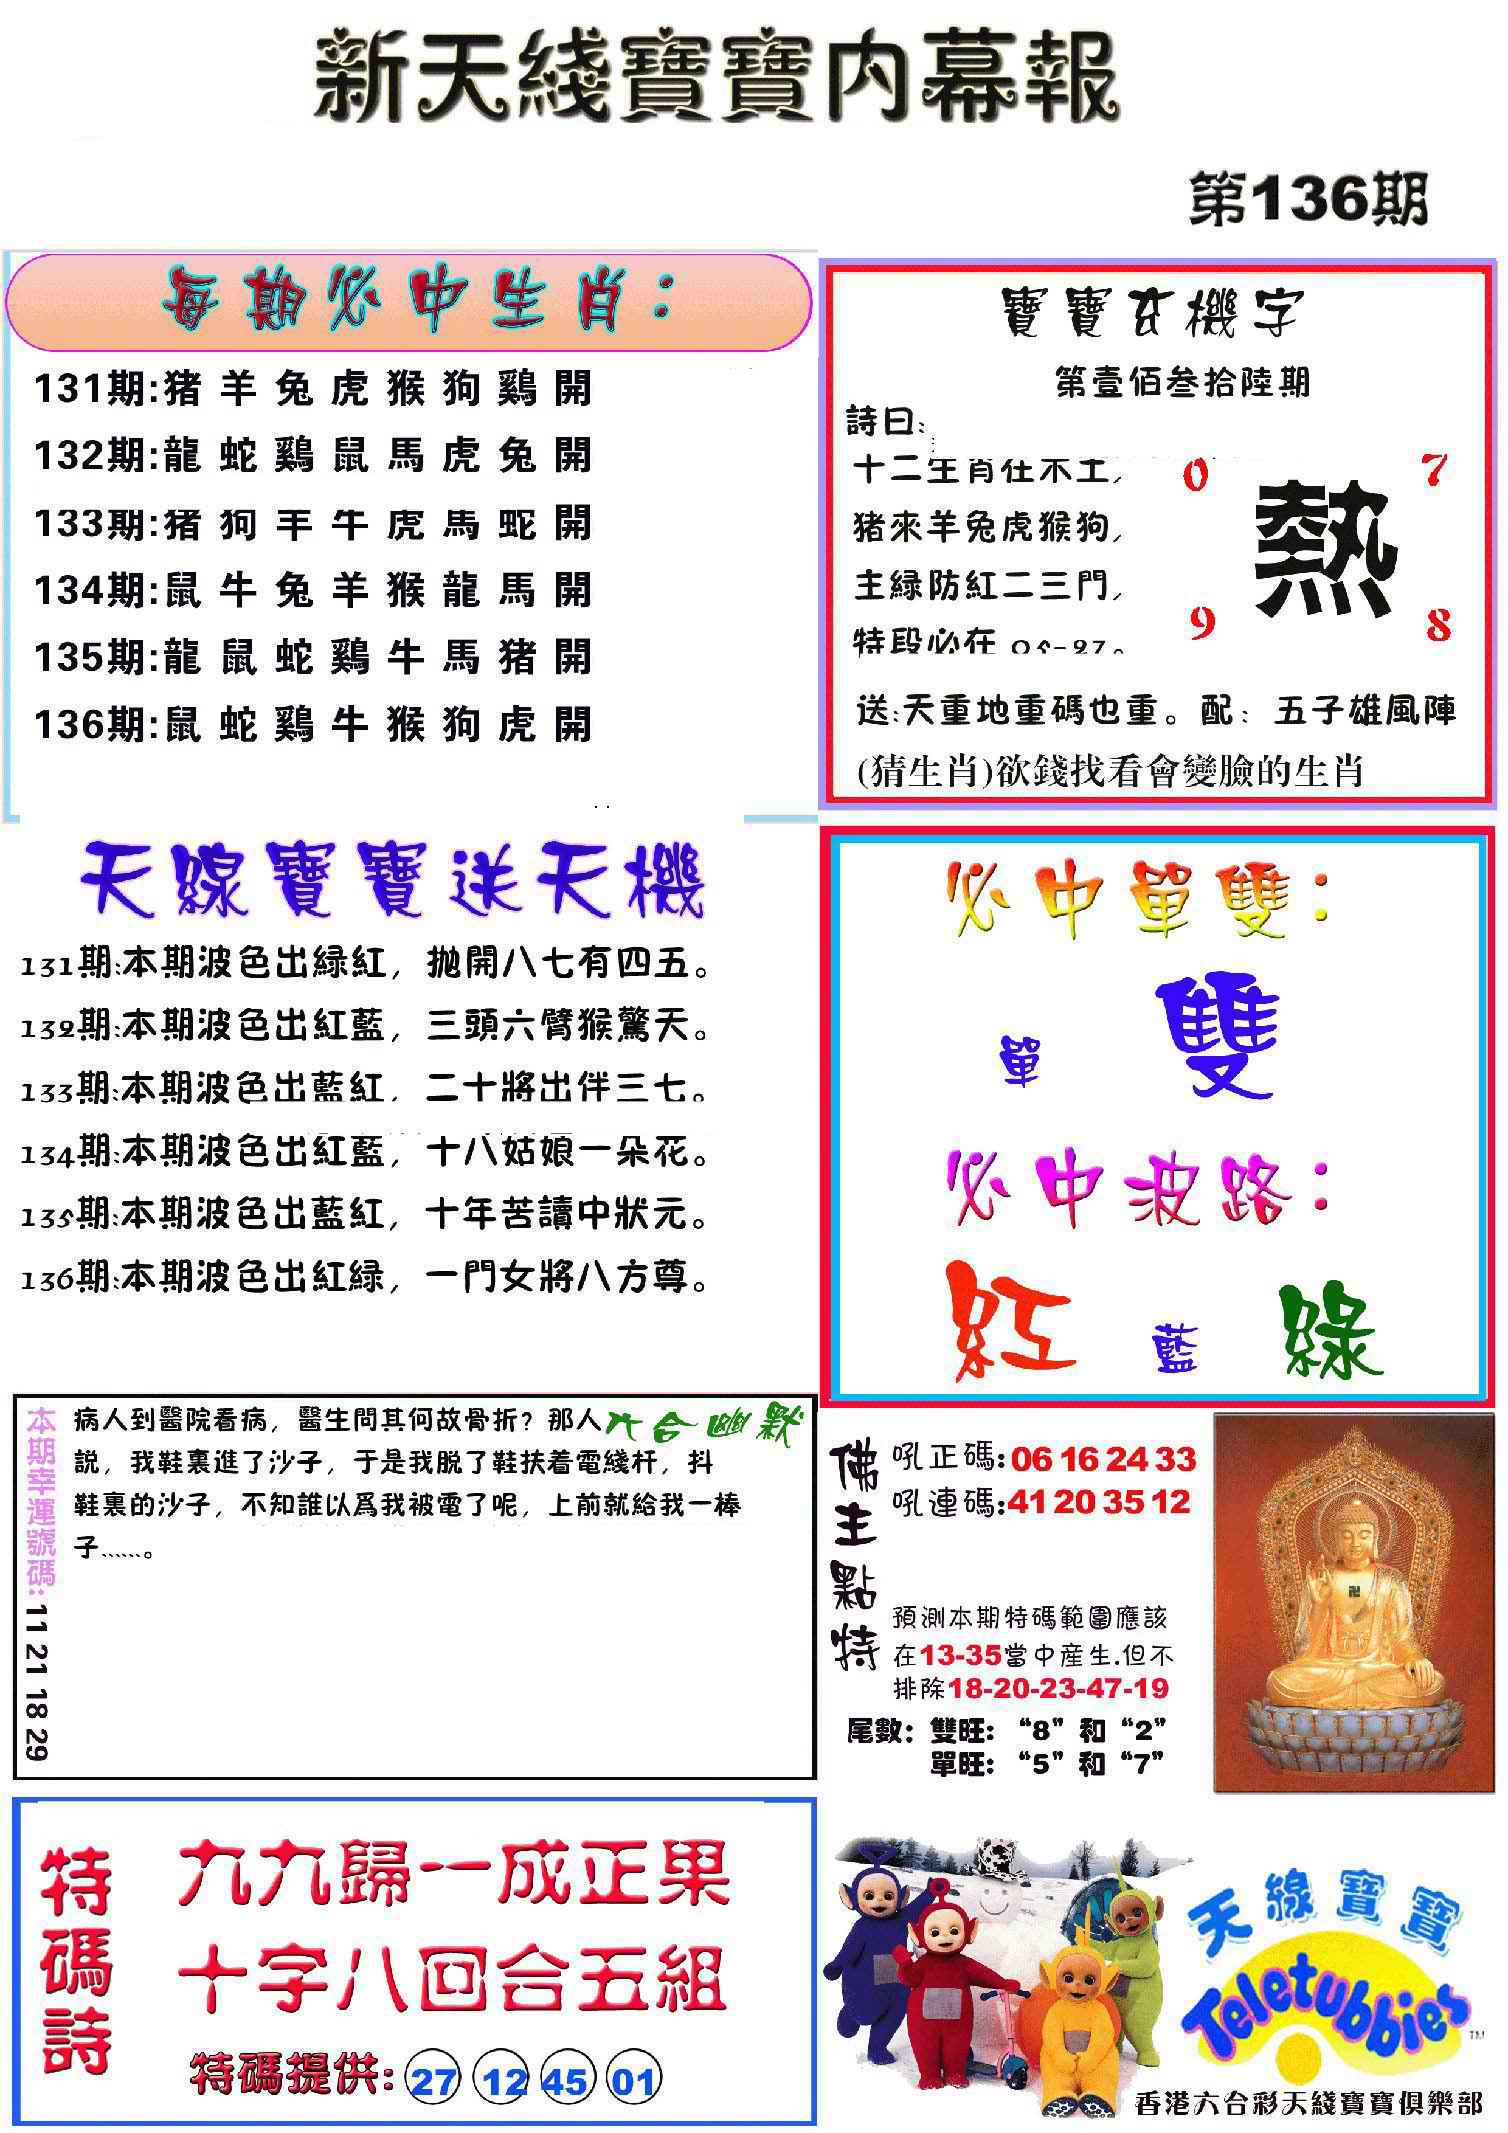 新天綫寶寶内幕報
第136期
每期必中生肖：
131期:猪羊兔虎猴狗鷄開
132期:龍蛇鷄鼠馬虎兔開
133期:猪狗羊牛虎馬蛇開
134期:鼠牛兔羊猴龍馬開
135期:龍鼠蛇鷄牛馬猪開
136期:鼠蛇鷄牛猴狗虎開
寶寶玄機字
第壹佰叁拾陸期
詩曰:
十二生肖在木土,
猪來羊兔虎猴狗,
主緑防紅二三門,
特段必在 05-27。
0 7
熱
9 8
送:天重地重碼也重。配: 五子雄風陣
(猜生肖)欲錢找看會變臉的生肖
天線寶寶送天機
131期:本期波色出緑紅, 拋開八七有四五。
132期:本期波色出紅藍, 三頭六臂猴驚天。
133期:本期波色出藍紅, 二十將出伴三七。
134期:本期波色出紅藍, 十八姑娘一朵花。
135期:本期波色出藍紅, 十年苦讀中狀元。
136期:本期波色出紅緑, 一門女將八方尊。
必中單雙：
單 雙
必中波路：
紅 藍 綠
本期幸運號碼: 11 21 18 29
六合幽默
病人到醫院看病, 醫生問其何故骨折? 那人
説, 我鞋裏進了沙子, 于是我脱了鞋扶着電綫杆, 抖
鞋裏的沙子, 不知誰以爲我被電了呢, 上前就給我一棒
子......。
佛主點特
吼正碼:06 16 24 33
吼連碼:41 20 35 12
預測本期特碼範圍應該
在13-35當中産生.但不
排除18-20-23-47-19
尾數: 雙旺: “8”和“2”
單旺: “5”和“7”
特碼詩
九九歸一成正果
十字八回合五組
特碼提供: 27 12 45 01
天線寶寶
Teletubbies
TM
香港六合彩天綫寶寶俱樂部